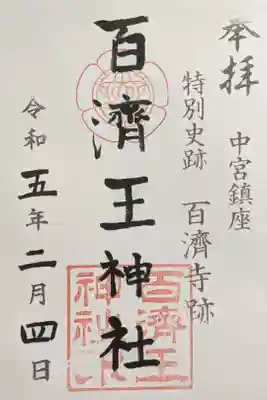 奉拝
中宮鎮座
特別史跡 百濟寺跡
百濟王神社
令和五年二月四日
百濟王
神社